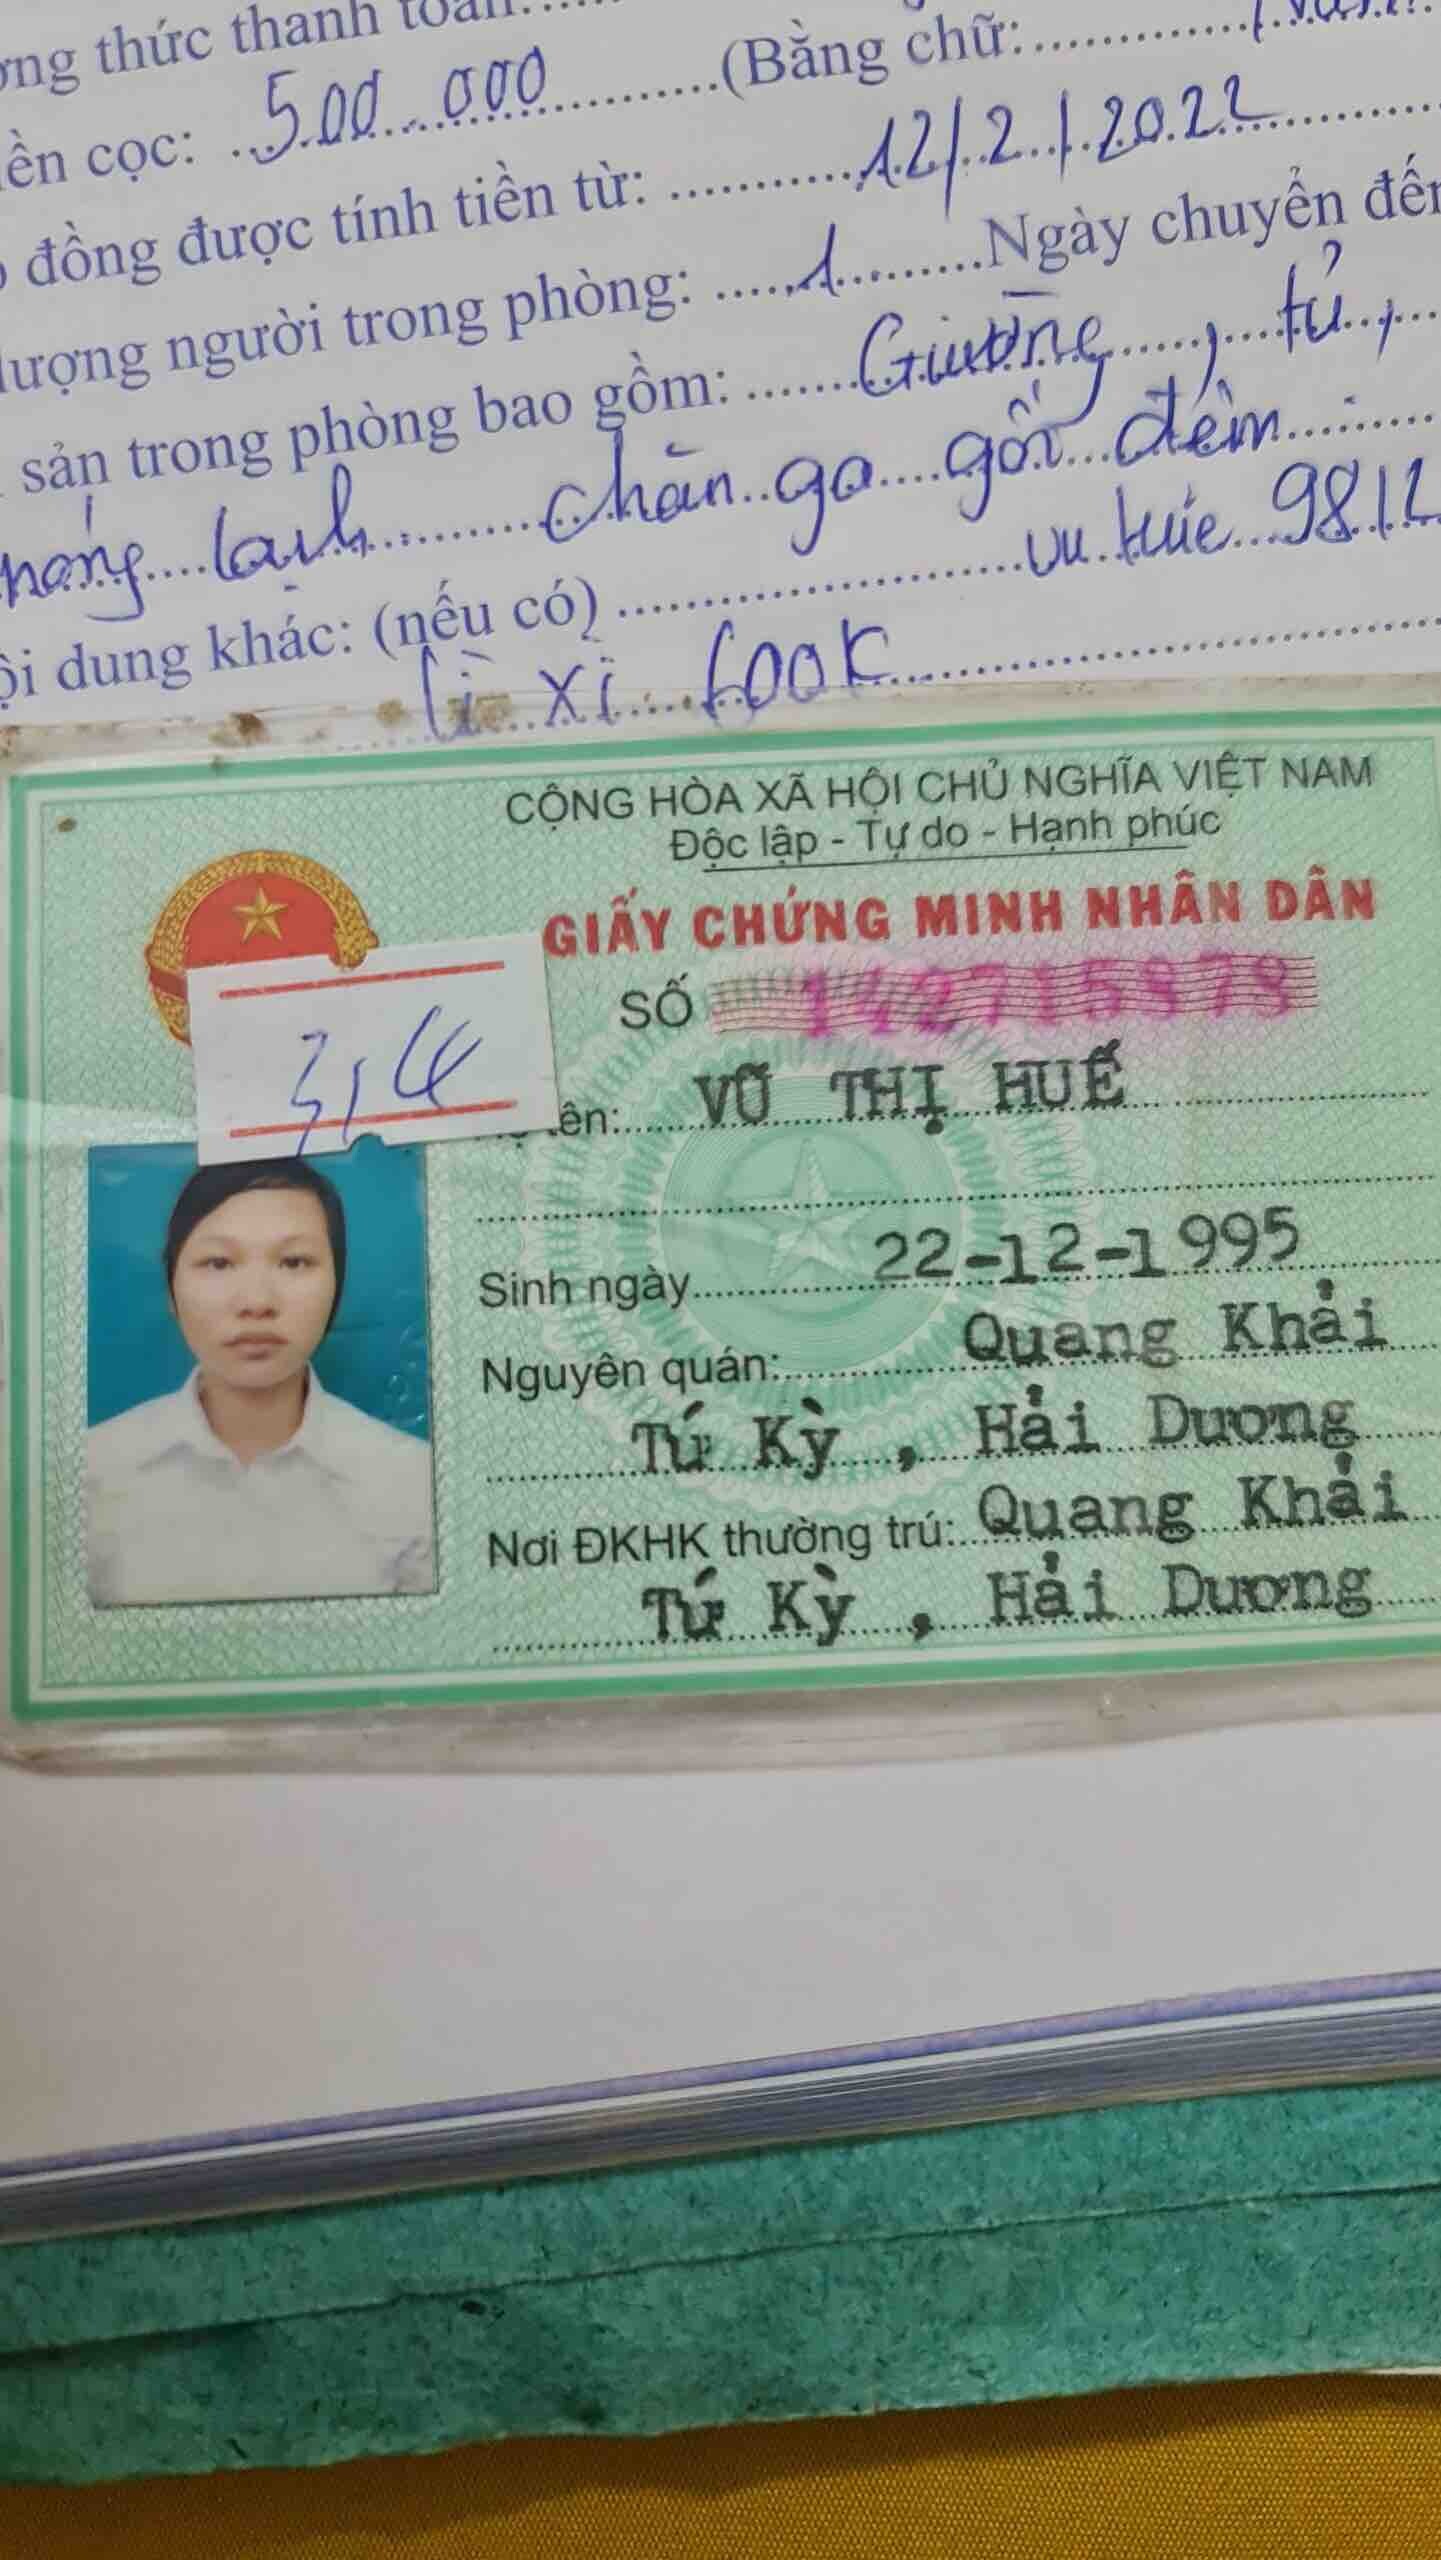 ơng thức thanh toán:
iền cọc: 500.000 (Bằng chữ:
p đồng được tính tiền từ: 12/2/2022
lượng người trong phòng: 1 Ngày chuyển đến
sản trong phòng bao gồm: Giường, tủ,
nóng lạnh chăn ga gối đệm
ội dung khác: (nếu có) vu huê 98 12
lì xì 600K
CỘNG HÒA XÃ HỘI CHỦ NGHĨA VIỆT NAM
Độc lập - Tự do - Hạnh phúc
GIẤY CHỨNG MINH NHÂN DÂN
SỐ 142715979
314
ên: VŨ THỊ HUẾ
Sinh ngày 22-12-1995
Nguyên quán: Quang Khải
Tứ Kỳ, Hải Dương
Nơi ĐKHK thường trú: Quang Khải
Tứ Kỳ, Hải Dương